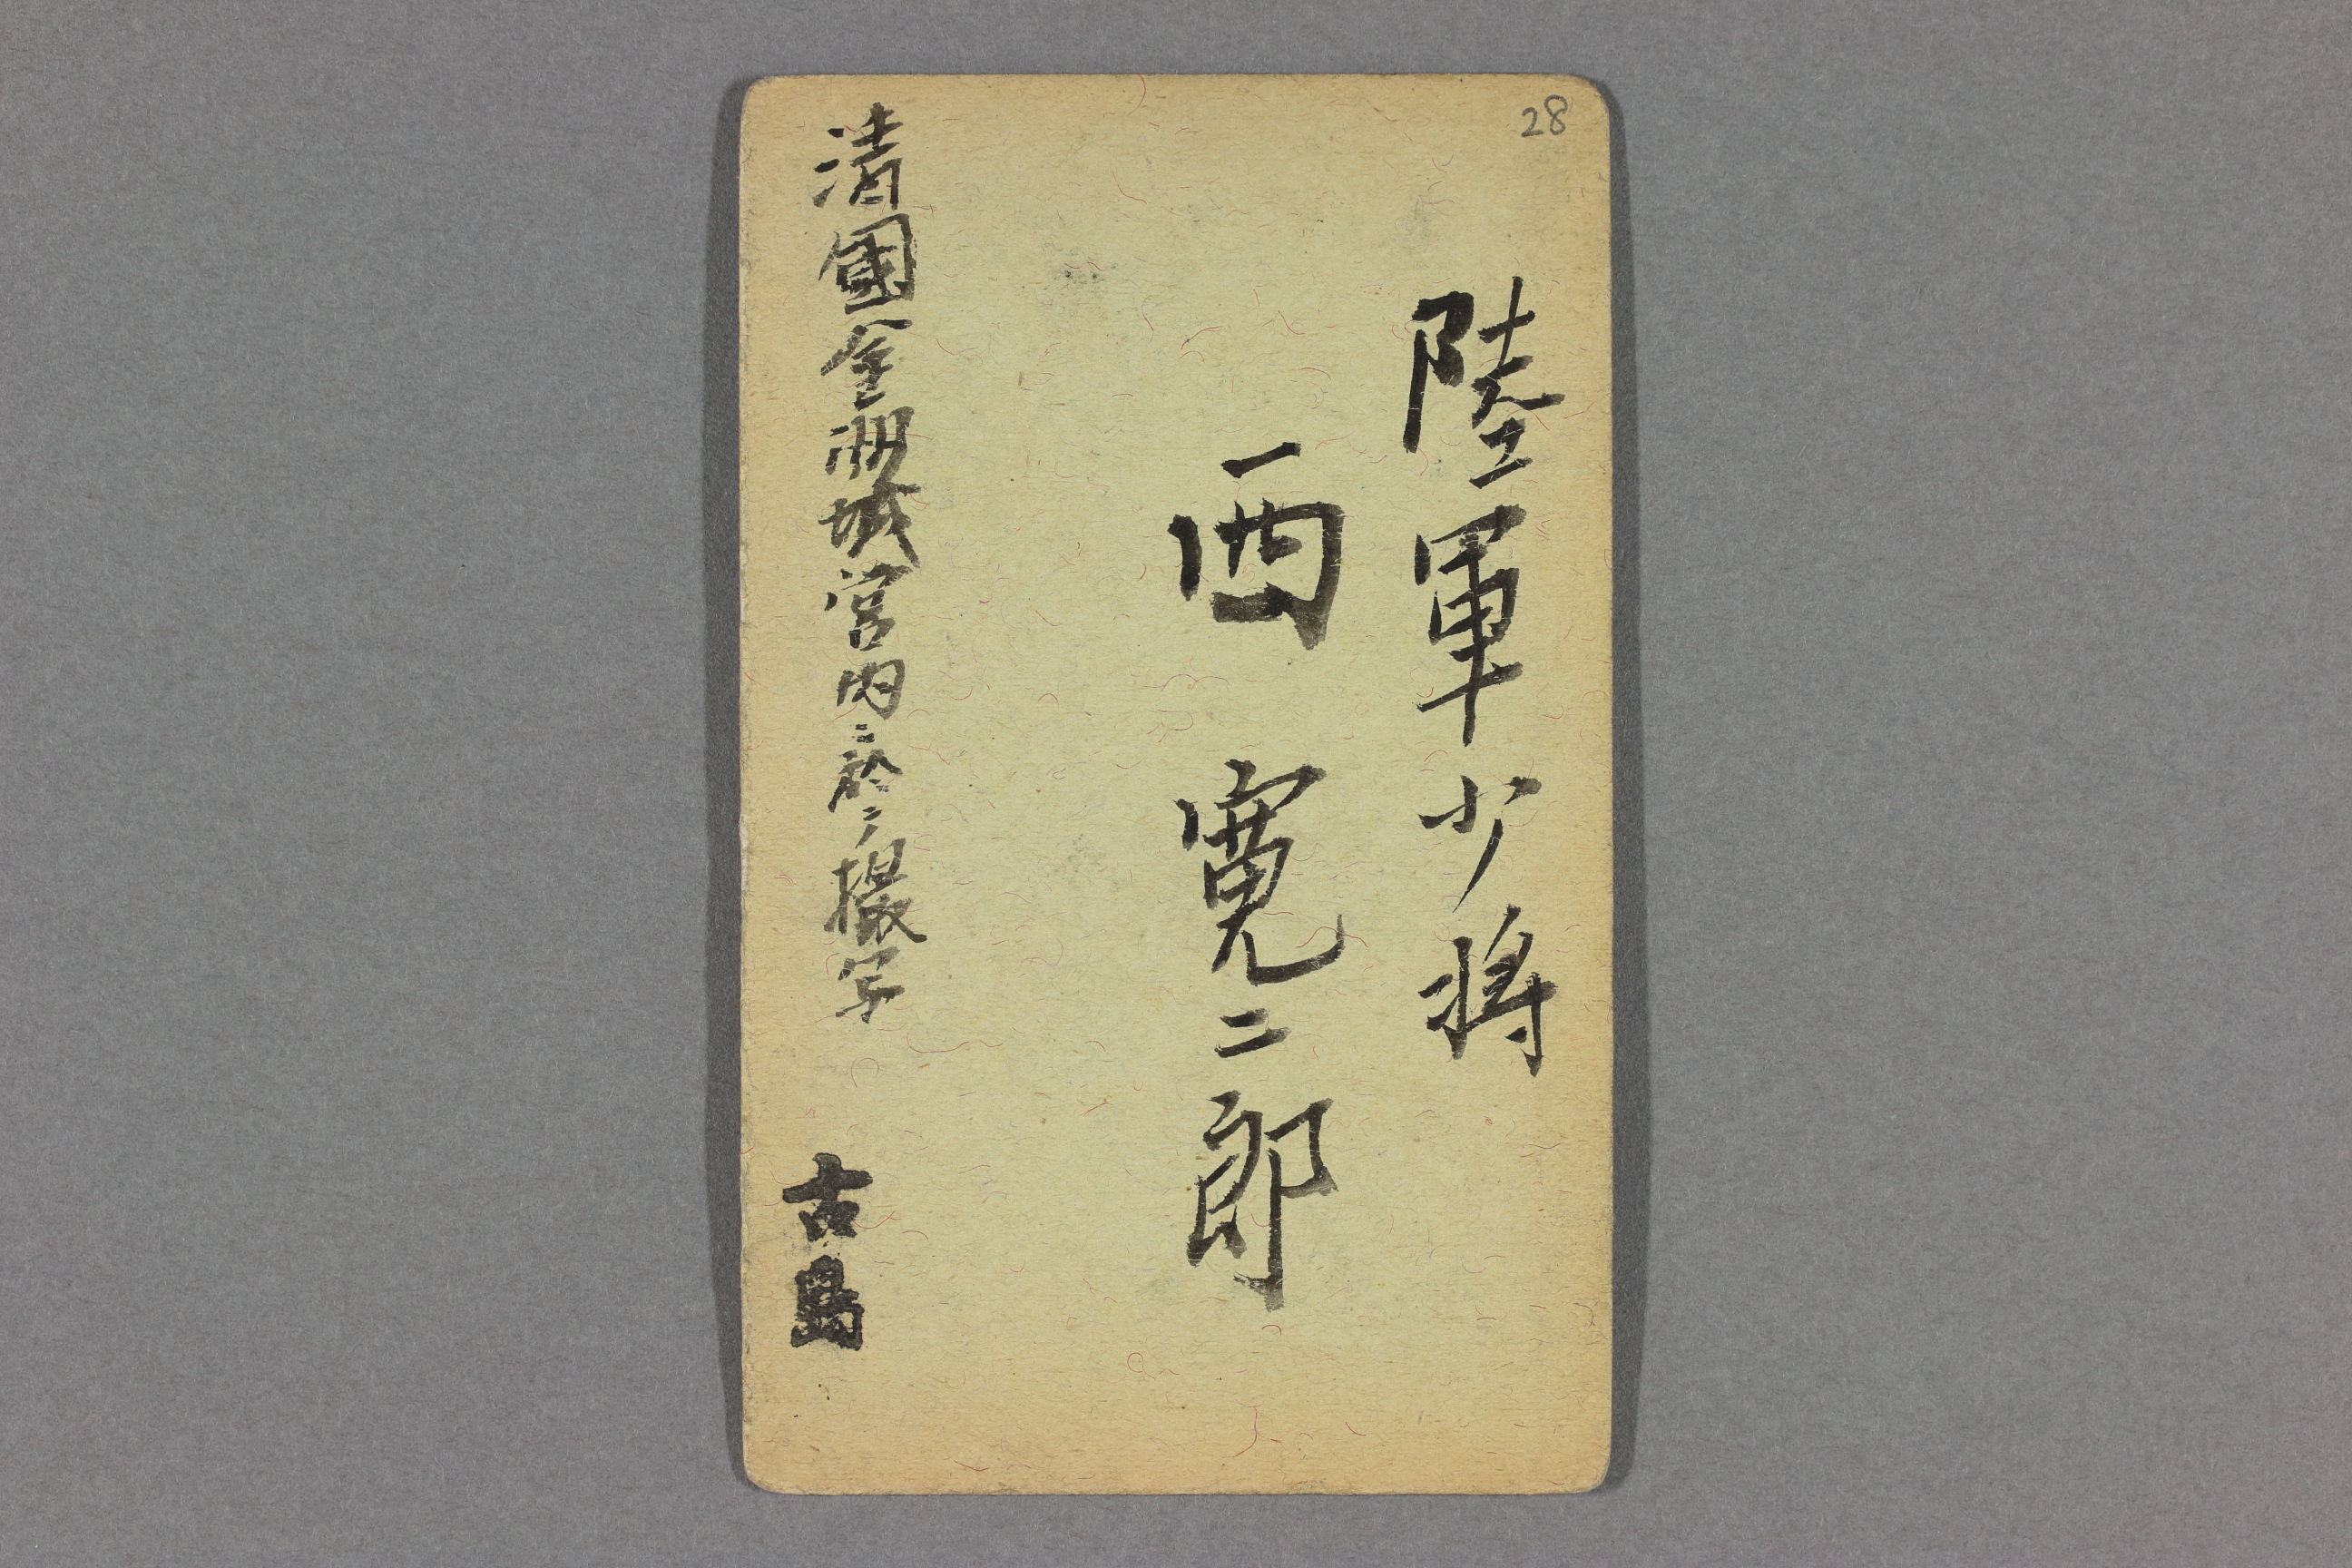 28
陸軍少将
西寛二郎
清國金州城宮内ニ於テ撮写
古島